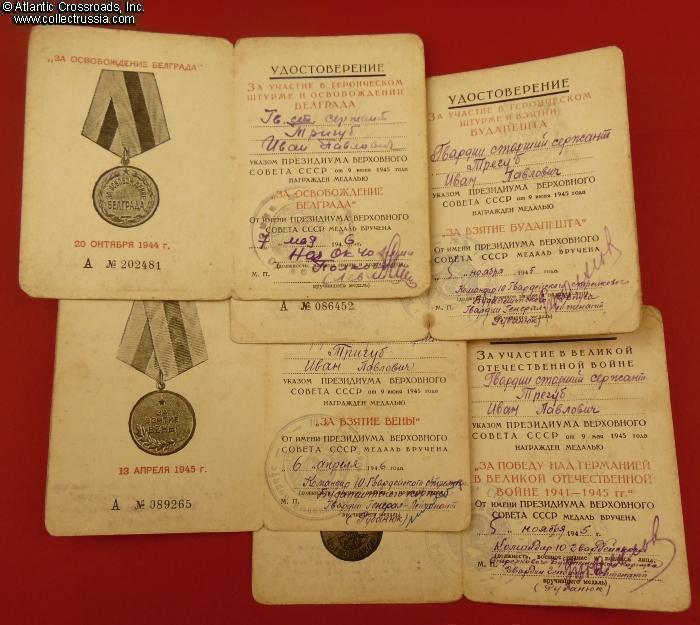 © Atlantic Crossroads, Inc.
www.collectrussia.com
„ЗА ОСВОБОЖДЕНИЕ БЕЛГРАДА“
ЗА ОСВОБОЖДЕНИЕ
БЕЛГРАДА
20 ОКТЯБРЯ 1944 г.
А № 202481
УДОСТОВЕРЕНИЕ
ЗА УЧАСТИЕ В ГЕРОИЧЕСКОМ
ШТУРМЕ И ОСВОБОЖДЕНИИ
БЕЛГРАДА
Гв. ст. сержант
Тригуб
Иван Павлович
УКАЗОМ ПРЕЗИДИУМА ВЕРХОВНОГО
СОВЕТА СССР от 9 июня 1945 года
НАГРАЖДЕН МЕДАЛЬЮ
„ЗА ОСВОБОЖДЕНИЕ
БЕЛГРАДА“
От имени ПРЕЗИДИУМА ВЕРХОВНОГО
СОВЕТА СССР МЕДАЛЬ ВРУЧЕНА
7 мая 1946 г.
М. П.
вручившего медаль)
А № 086452
УДОСТОВЕРЕНИЕ
ЗА УЧАСТИЕ В ГЕРОИЧЕСКОМ
ШТУРМЕ И ВЗЯТИИ
БУДАПЕШТА
Гвардии старший сержант
Трегуб
Иван Павлович
УКАЗОМ ПРЕЗИДИУМА ВЕРХОВНОГО
СОВЕТА СССР от 9 июня 1945 года
НАГРАЖДЕН МЕДАЛЬЮ
„ЗА ВЗЯТИЕ БУДАПЕШТА“
От имени ПРЕЗИДИУМА ВЕРХОВНОГО
СОВЕТА СССР МЕДАЛЬ ВРУЧЕНА
5 ноября 1945 г.
Командир 10 Гвардейского стрелкового
Будапештского корпуса
М. П. Гвардии Генерал-Лейтенант
(Рубанюк)
ЗА
ВЗЯТИЕ
ВЕНЫ
13 АПРЕЛЯ 1945 г.
А № 089265
Тригуб
Иван Павлович
УКАЗОМ ПРЕЗИДИУМА ВЕРХОВНОГО
СОВЕТА СССР от 9 июня 1945 года
НАГРАЖДЕН МЕДАЛЬЮ
„ЗА ВЗЯТИЕ ВЕНЫ“
От имени ПРЕЗИДИУМА ВЕРХОВНОГО
СОВЕТА СССР МЕДАЛЬ ВРУЧЕНА
6 апреля 1946 года
Командир 10 Гвардейского
Будапештского корпуса
М. П. Гвардии Генерал-Лейтенант
(Рубанюк)
ЗА УЧАСТИЕ В ВЕЛИКОЙ
ОТЕЧЕСТВЕННОЙ ВОЙНЕ
Гвардии старший сержант
Трегуб
Иван Павлович
УКАЗОМ ПРЕЗИДИУМА ВЕРХОВНОГО
СОВЕТА СССР от 9 мая 1945 года
НАГРАЖДЕН МЕДАЛЬЮ
„ЗА ПОБЕДУ НАД ГЕРМАНИЕЙ
В ВЕЛИКОЙ ОТЕЧЕСТВЕННОЙ
ВОЙНЕ 1941—1945 гг.“
От имени ПРЕЗИДИУМА ВЕРХОВНОГО
СОВЕТА СССР МЕДАЛЬ ВРУЧЕНА
5 ноября 1945 г.
Командир 10 Гвардейского
(должность, военное звание и подпись лица,
М. П.
вручившего медаль)
(Рубанюк)